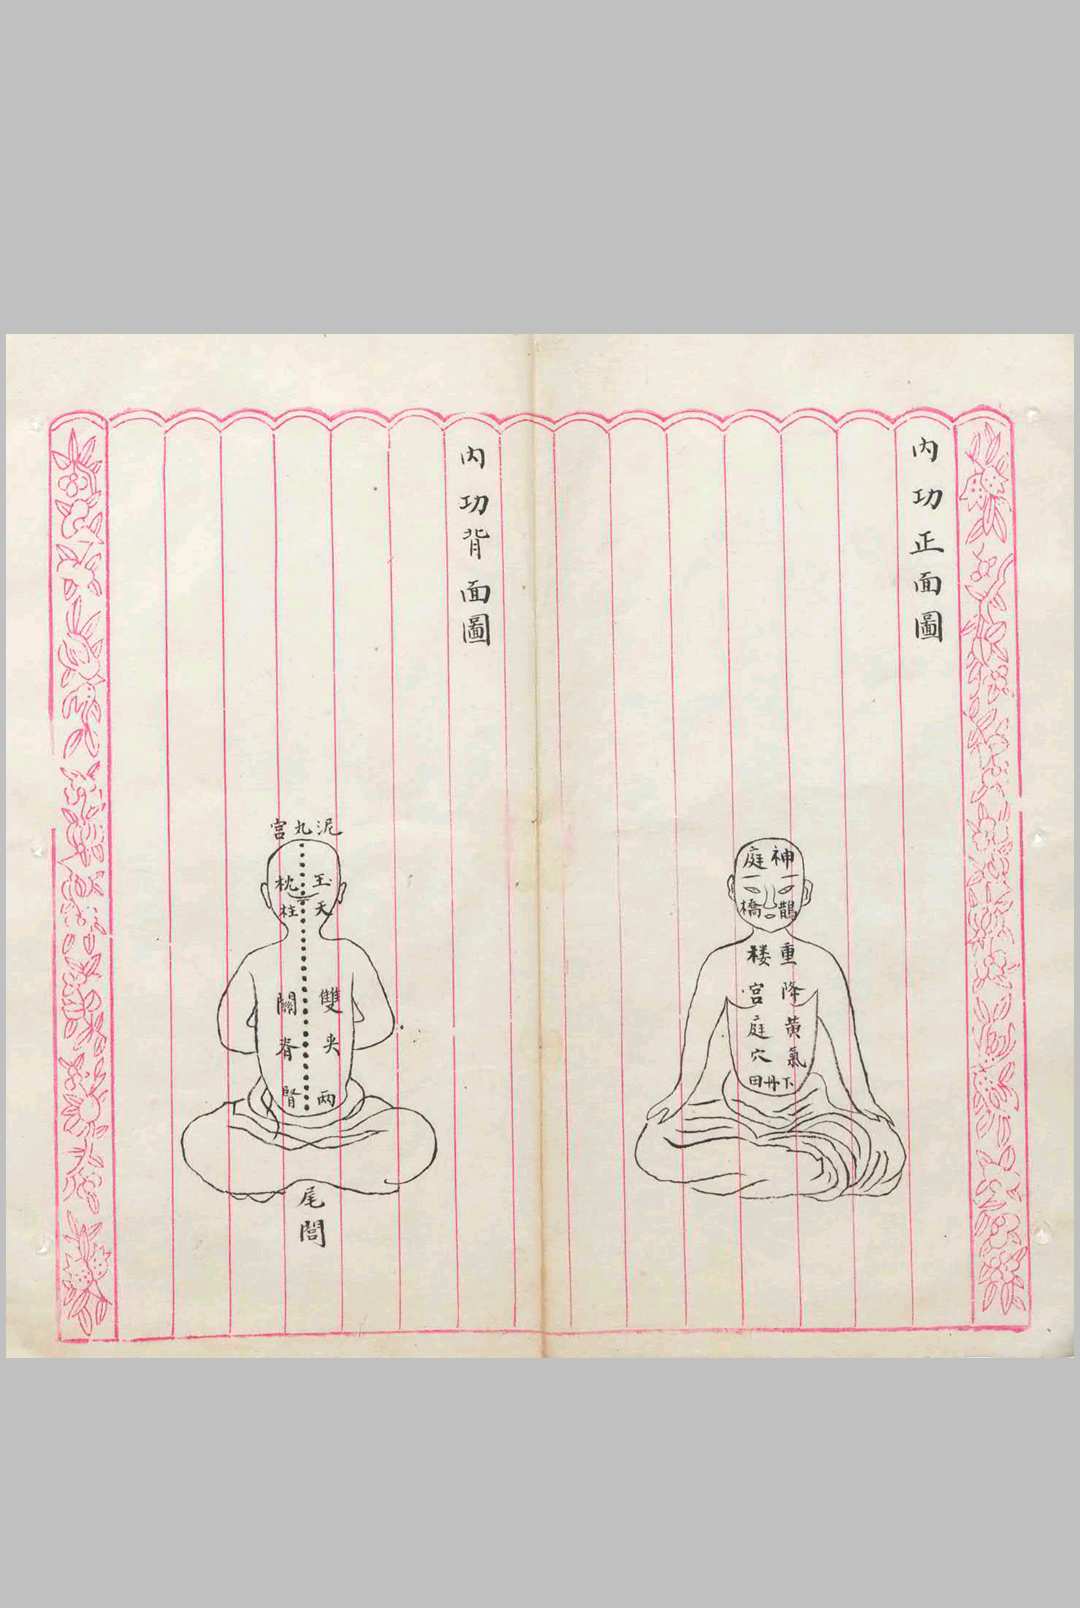 內功正面圖
神庭
鵲橋
重楼
降宮
黃庭
氣穴
下丹田
內功背面圖
泥丸宮
玉枕
天柱
雙關
夾脊
兩腎
尾閭